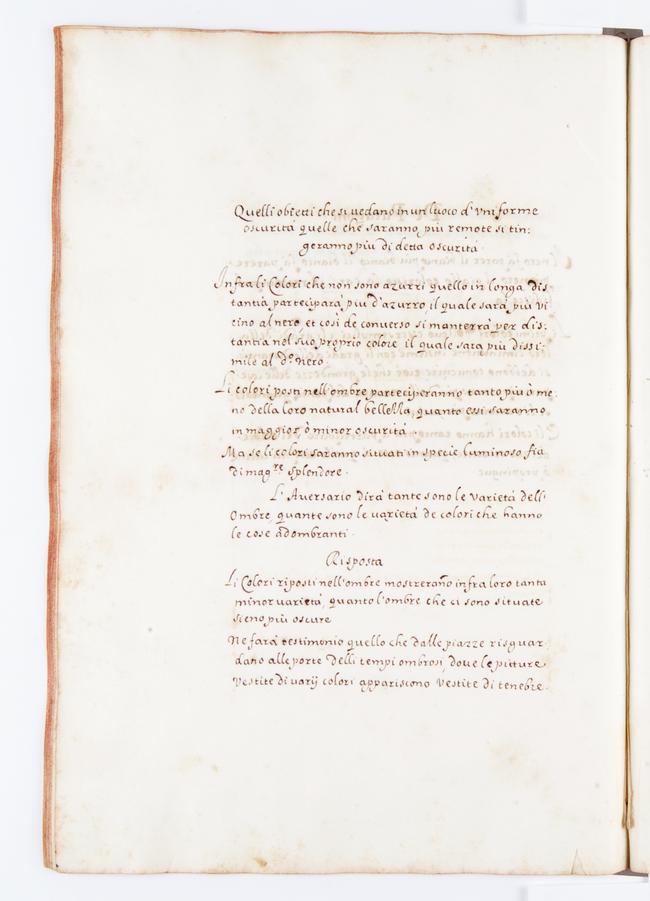 Quelli obietti che si vedano in un luoco d'vniforme
oscurità quelle che saranno più remote si tin:
geranno più di detta oscurità
Infra li Colori che non sono azurri quello in longa dis:
tantia parteciparà più d'azurro, il quale sarà più vi
cino al nero, et cosi de converso si manterrà per dis:
tantia nel suo proprio colore il quale sara più dissi:
mile al d.º nero.
Li colori posti nell'ombre parteciperanno tanto più ò me:
no della loro natural bellezza, quanto essi saranno
in maggior ò minor oscurità.
Ma se li colori saranno situati in specie luminoso, fia
di mag.re splendore.
L'Aversario dirà tante sono le varietà dell'
Ombre, quante sono le varietà de colori che hanno
le cose adombranti.
Risposta
Li Colori riposti nell'ombre mostrerano infra loro tanta
minor varietà, quanto l'ombre che ci sono situate
sieno più oscure
Ne farà testimonio quello che dalle piazze risguar
dano alle porte delli tempi ombrosi, dove le pitture
vestite di varij colori appariscono vestite di tenebre.